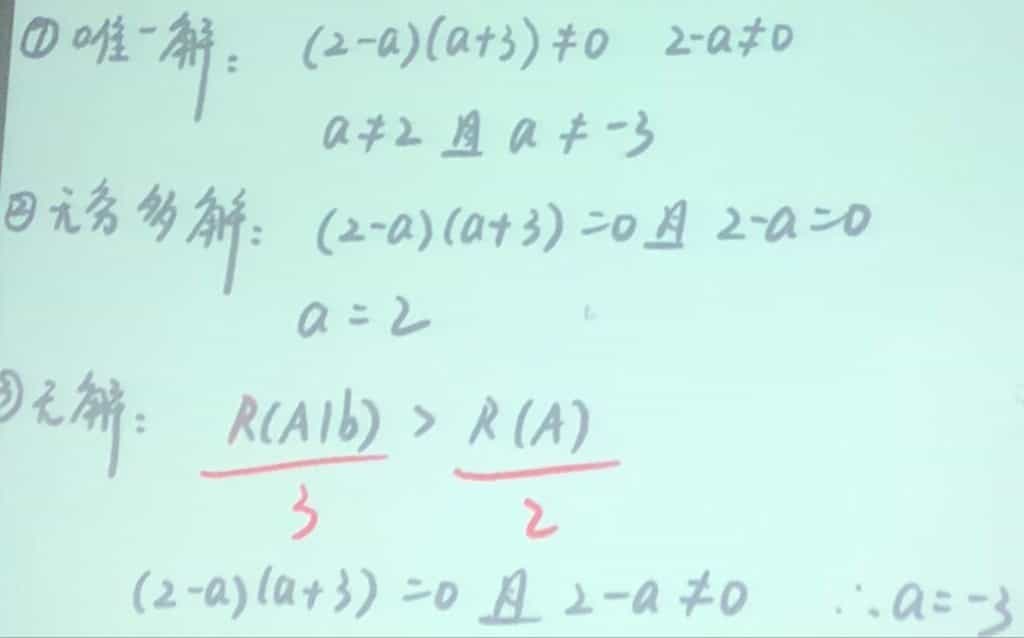 ①唯一解: (2-a)(a+3)≠0 2-a≠0
a≠2 且 a≠-3
②无穷多解: (2-a)(a+3)=0 且 2-a=0
a=2
③无解: R(A|b) > R(A)
3 2
(2-a)(a+3)=0 且 2-a≠0 ∴a=-3